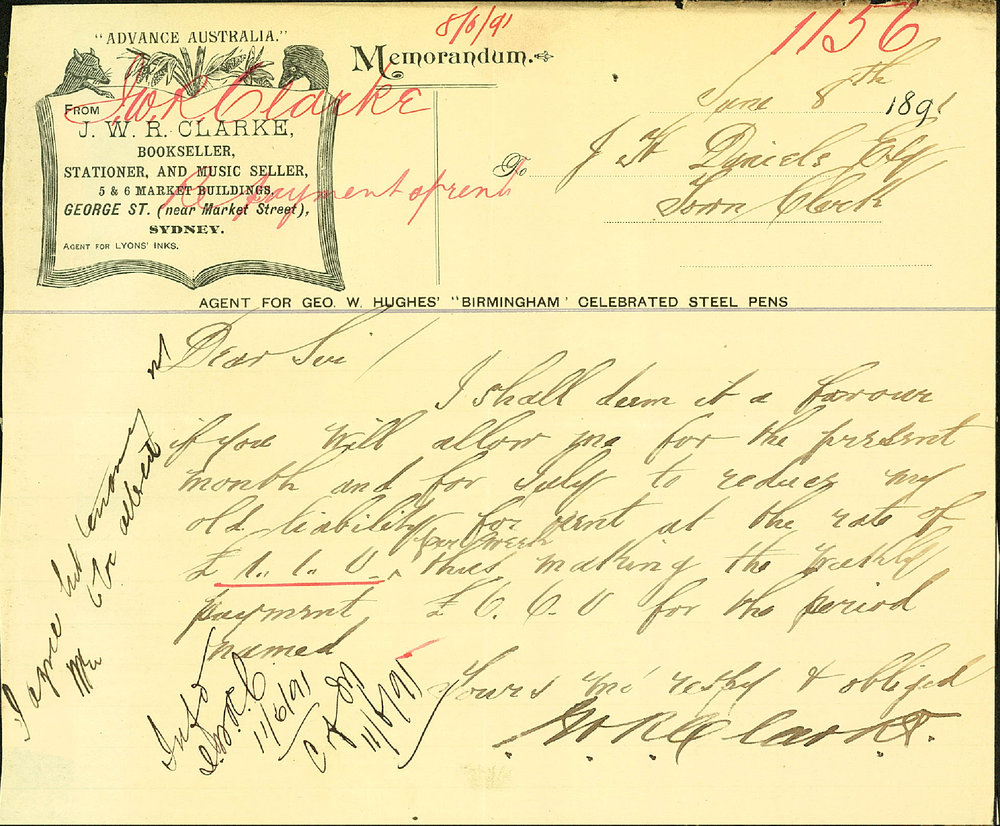 8/6/91
1156
"ADVANCE AUSTRALIA."
Memorandum.
J.W.R Clarke
June 8th 1891
FROM
J. W. R. CLARKE,
BOOKSELLER,
STATIONER, AND MUSIC SELLER,
5 & 6 MARKET BUILDINGS,
GEORGE ST. (near Market Street),
SYDNEY.
AGENT FOR LYONS' INKS.
Re payment of rent
To J H Daniels Esq
Town Clerk
AGENT FOR GEO. W. HUGHES' "BIRMINGHAM' CELEBRATED STEEL PENS
Dear Sir /
I shall deem it a favour
if you will allow me for the present
month and for July to reduce my
old liability for rent at the rate of
£ 1. 1. 0. per week thus making the weekly
payment £ 6. 6. 0 for the period
named
Yours mo respy & obliged
JWR Clarke.
I agree but
to be
Inf'd
J.W.R.C
11/6/91
11/6/91